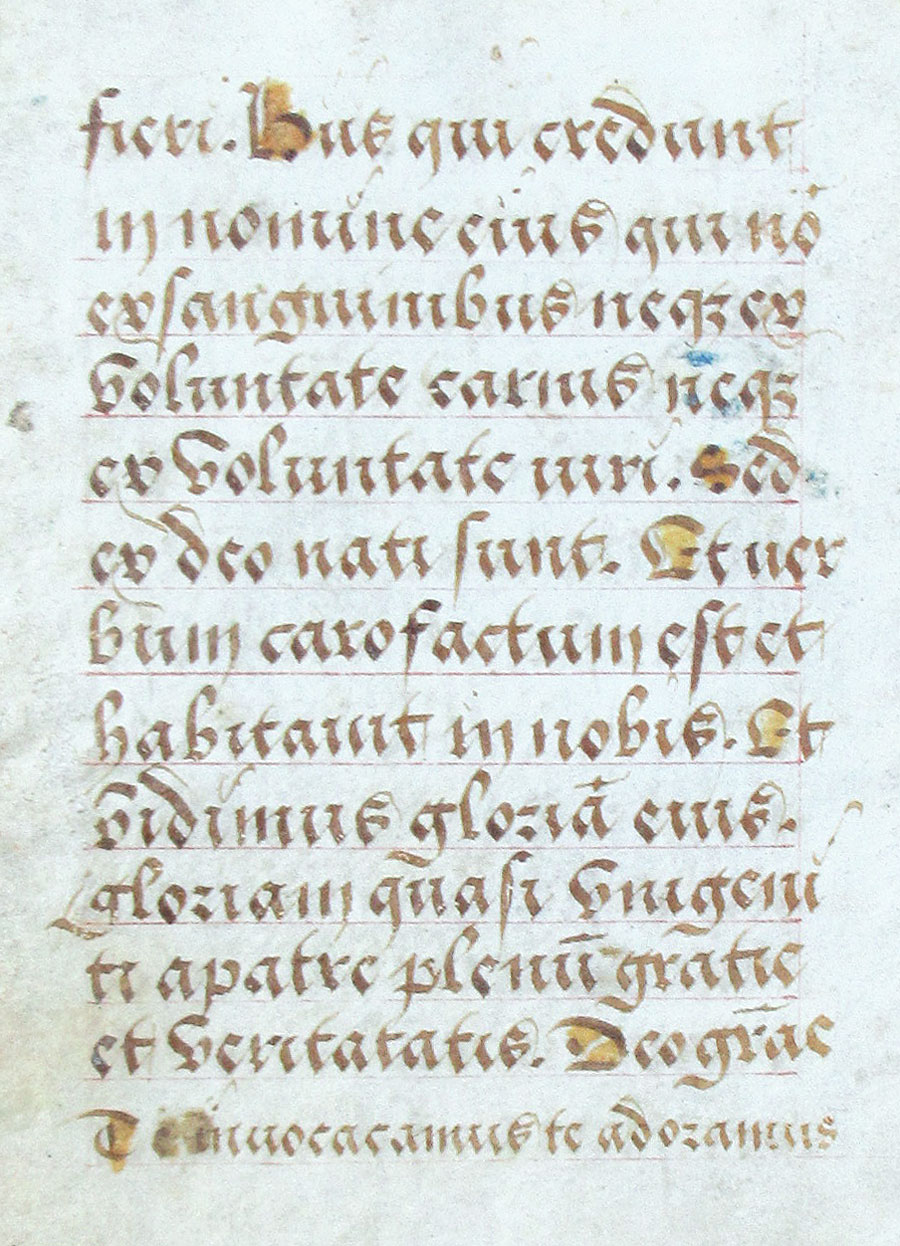 fieri. Hiis qui credunt
in nomine eius qui nō
ex sanguinibus neqȝ ex
voluntate carnis neqȝ
ex voluntate uiri. Sed
ex deo nati sunt. Et uer
būm caro factum est et
habitauit in nobis. Et
vidimus gloriā eius.
gloriam quasi vnigeni
ti a patre plenū gratie
et veritatatis. Deo grāc
inuocacamus te adoramus